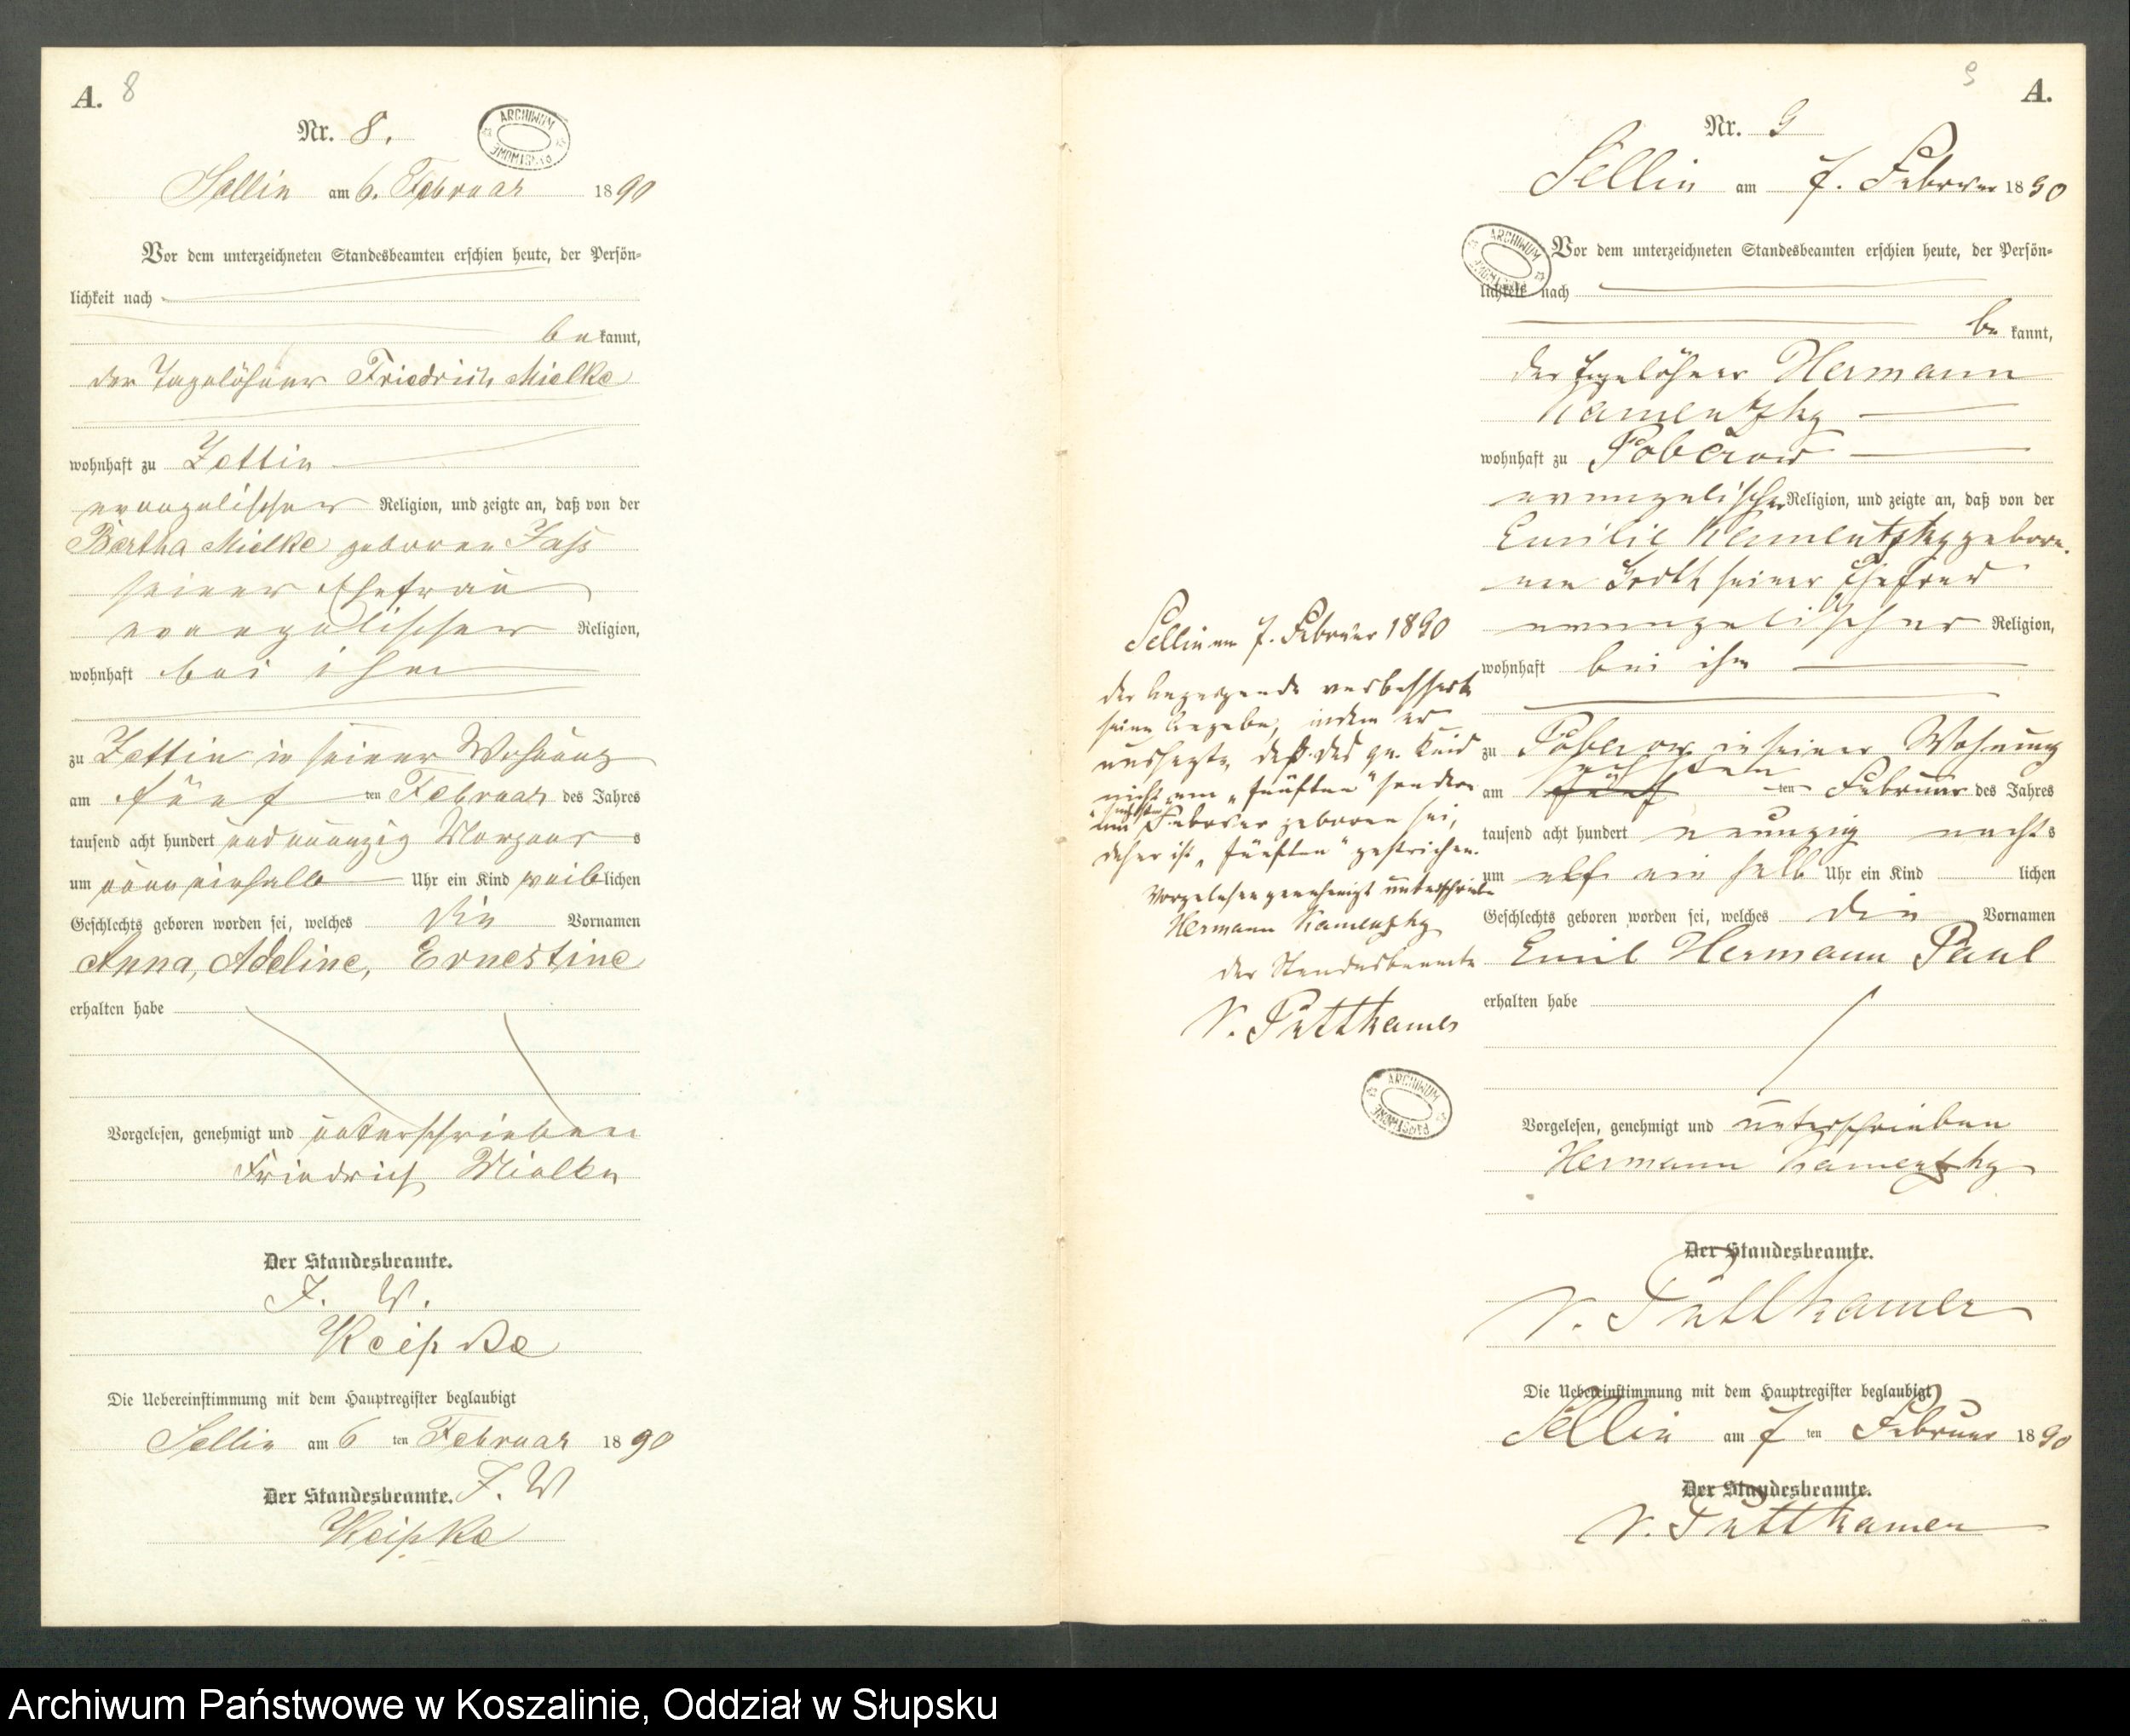 A. 8
Nr. 8.
ARCHIWUM PAŃSTWOWE
Sellin am 6. Februar 1890
Vor dem unterzeichneten Standesbeamten erschien heute, der Persön-
lichkeit nach
be kannt,
der Tagelöhner Friedrich Mielke
wohnhaft zu Zettin
evangelischer Religion, und zeigte an, daß von der
Bertha Mielke geboren
seiner Ehefrau
evangelischer Religion,
wohnhaft bei ihm
zu Zettin in seiner Wohnung
am fünf ten Februar des Jahres
tausend acht hundert und neunzig Morgens
um neun einhalb Uhr ein Kind weiblichen
Geschlechts geboren worden sei, welches die Vornamen
Anna, Adeline, Ernestine
erhalten habe
Vorgelesen, genehmigt und unterschrieben
Friedrich Mielke
Der Standesbeamte.
J. V.
Die Uebereinstimmung mit dem Hauptregister beglaubigt
Sellin am 6 ten Februar 1890
Der Standesbeamte. J. V.
9 A.
Nr. 9
Sellin am 7. Februar 1890
ARCHIWUM PAŃSTWOWE
Vor dem unterzeichneten Standesbeamten erschien heute, der Persön-
lichkeit nach
be kannt,
der Tagelöhner Hermann
Kamentzky
wohnhaft zu Poberow
evangelischer Religion, und zeigte an, daß von der
Emilie Kamentzky gebore-
nen seiner Ehefrau
evangelischer Religion,
wohnhaft bei ihm
zu Poberow in seiner Wohnung
sechsten
am fünf ten Februar des Jahres
tausend acht hundert neunzig nachts
um elf ein halb Uhr ein Kind lichen
Geschlechts geboren worden sei, welches die Vornamen
Emil Hermann Paul
erhalten habe
Vorgelesen, genehmigt und unterschrieben
Hermann Kamentzky
Der Standesbeamte.
v. Puttkamer
Die Uebereinstimmung mit dem Hauptregister beglaubigt
Sellin am 7 ten Februar 1890
Der Standesbeamte.
v. Puttkamer
Sellin am 7. Februar 1890
der Anzeigende verbesserte
seine Angabe, indem er
aussagte, daß das gen. Kind
nicht am „fünften" sondern
am sechsten Februar geboren sei,
daher ist „fünften" gestrichen.
Vorgelesen genehmigt unterschrieben
Hermann Kamentzky
der Standesbeamte
v. Puttkamer
ARCHIWUM PAŃSTWOWE
Archiwum Państwowe w Koszalinie, Oddział w Słupsku